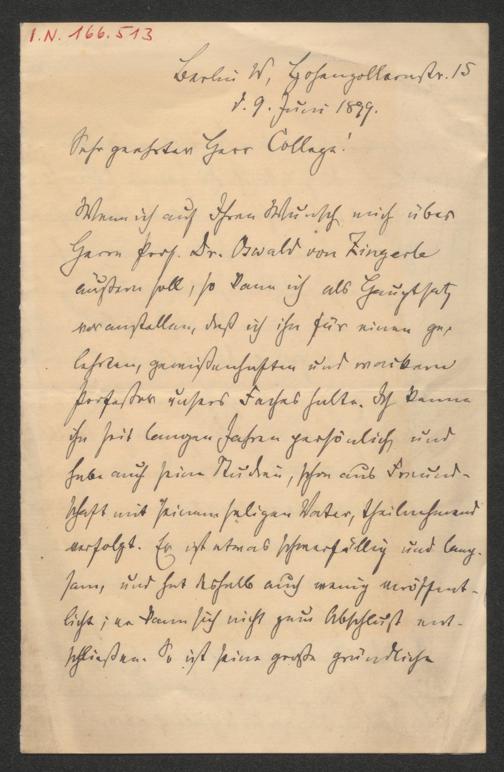 I.N. 166.513
Berlin W, Hohenzollernstr. 15
d. 9. Juni 1899.
Sehr geehrter Herr College!
Wenn ich auf Ihren Wunsch mich über
Herrn Prof. Dr. Oswald von Zingerle
äußern soll, so kann ich als Hauptsatz
voranstellen, daß ich ihn für einen ge-
lehrten, gewissenhaften und wackern
Professor unsers Faches halte. Ich kenne
ihn seit langen Jahren persönlich und
habe auch seine Studien, schon aus Freund-
schaft mit seinem seligen Vater, theilnehmend
verfolgt. Er ist etwas schwerfällig und lang-
sam, und hat deshalb auch wenig veröffent-
licht; er kann sich nicht zum Abschluß ent-
schließen. So ist seine große gründliche